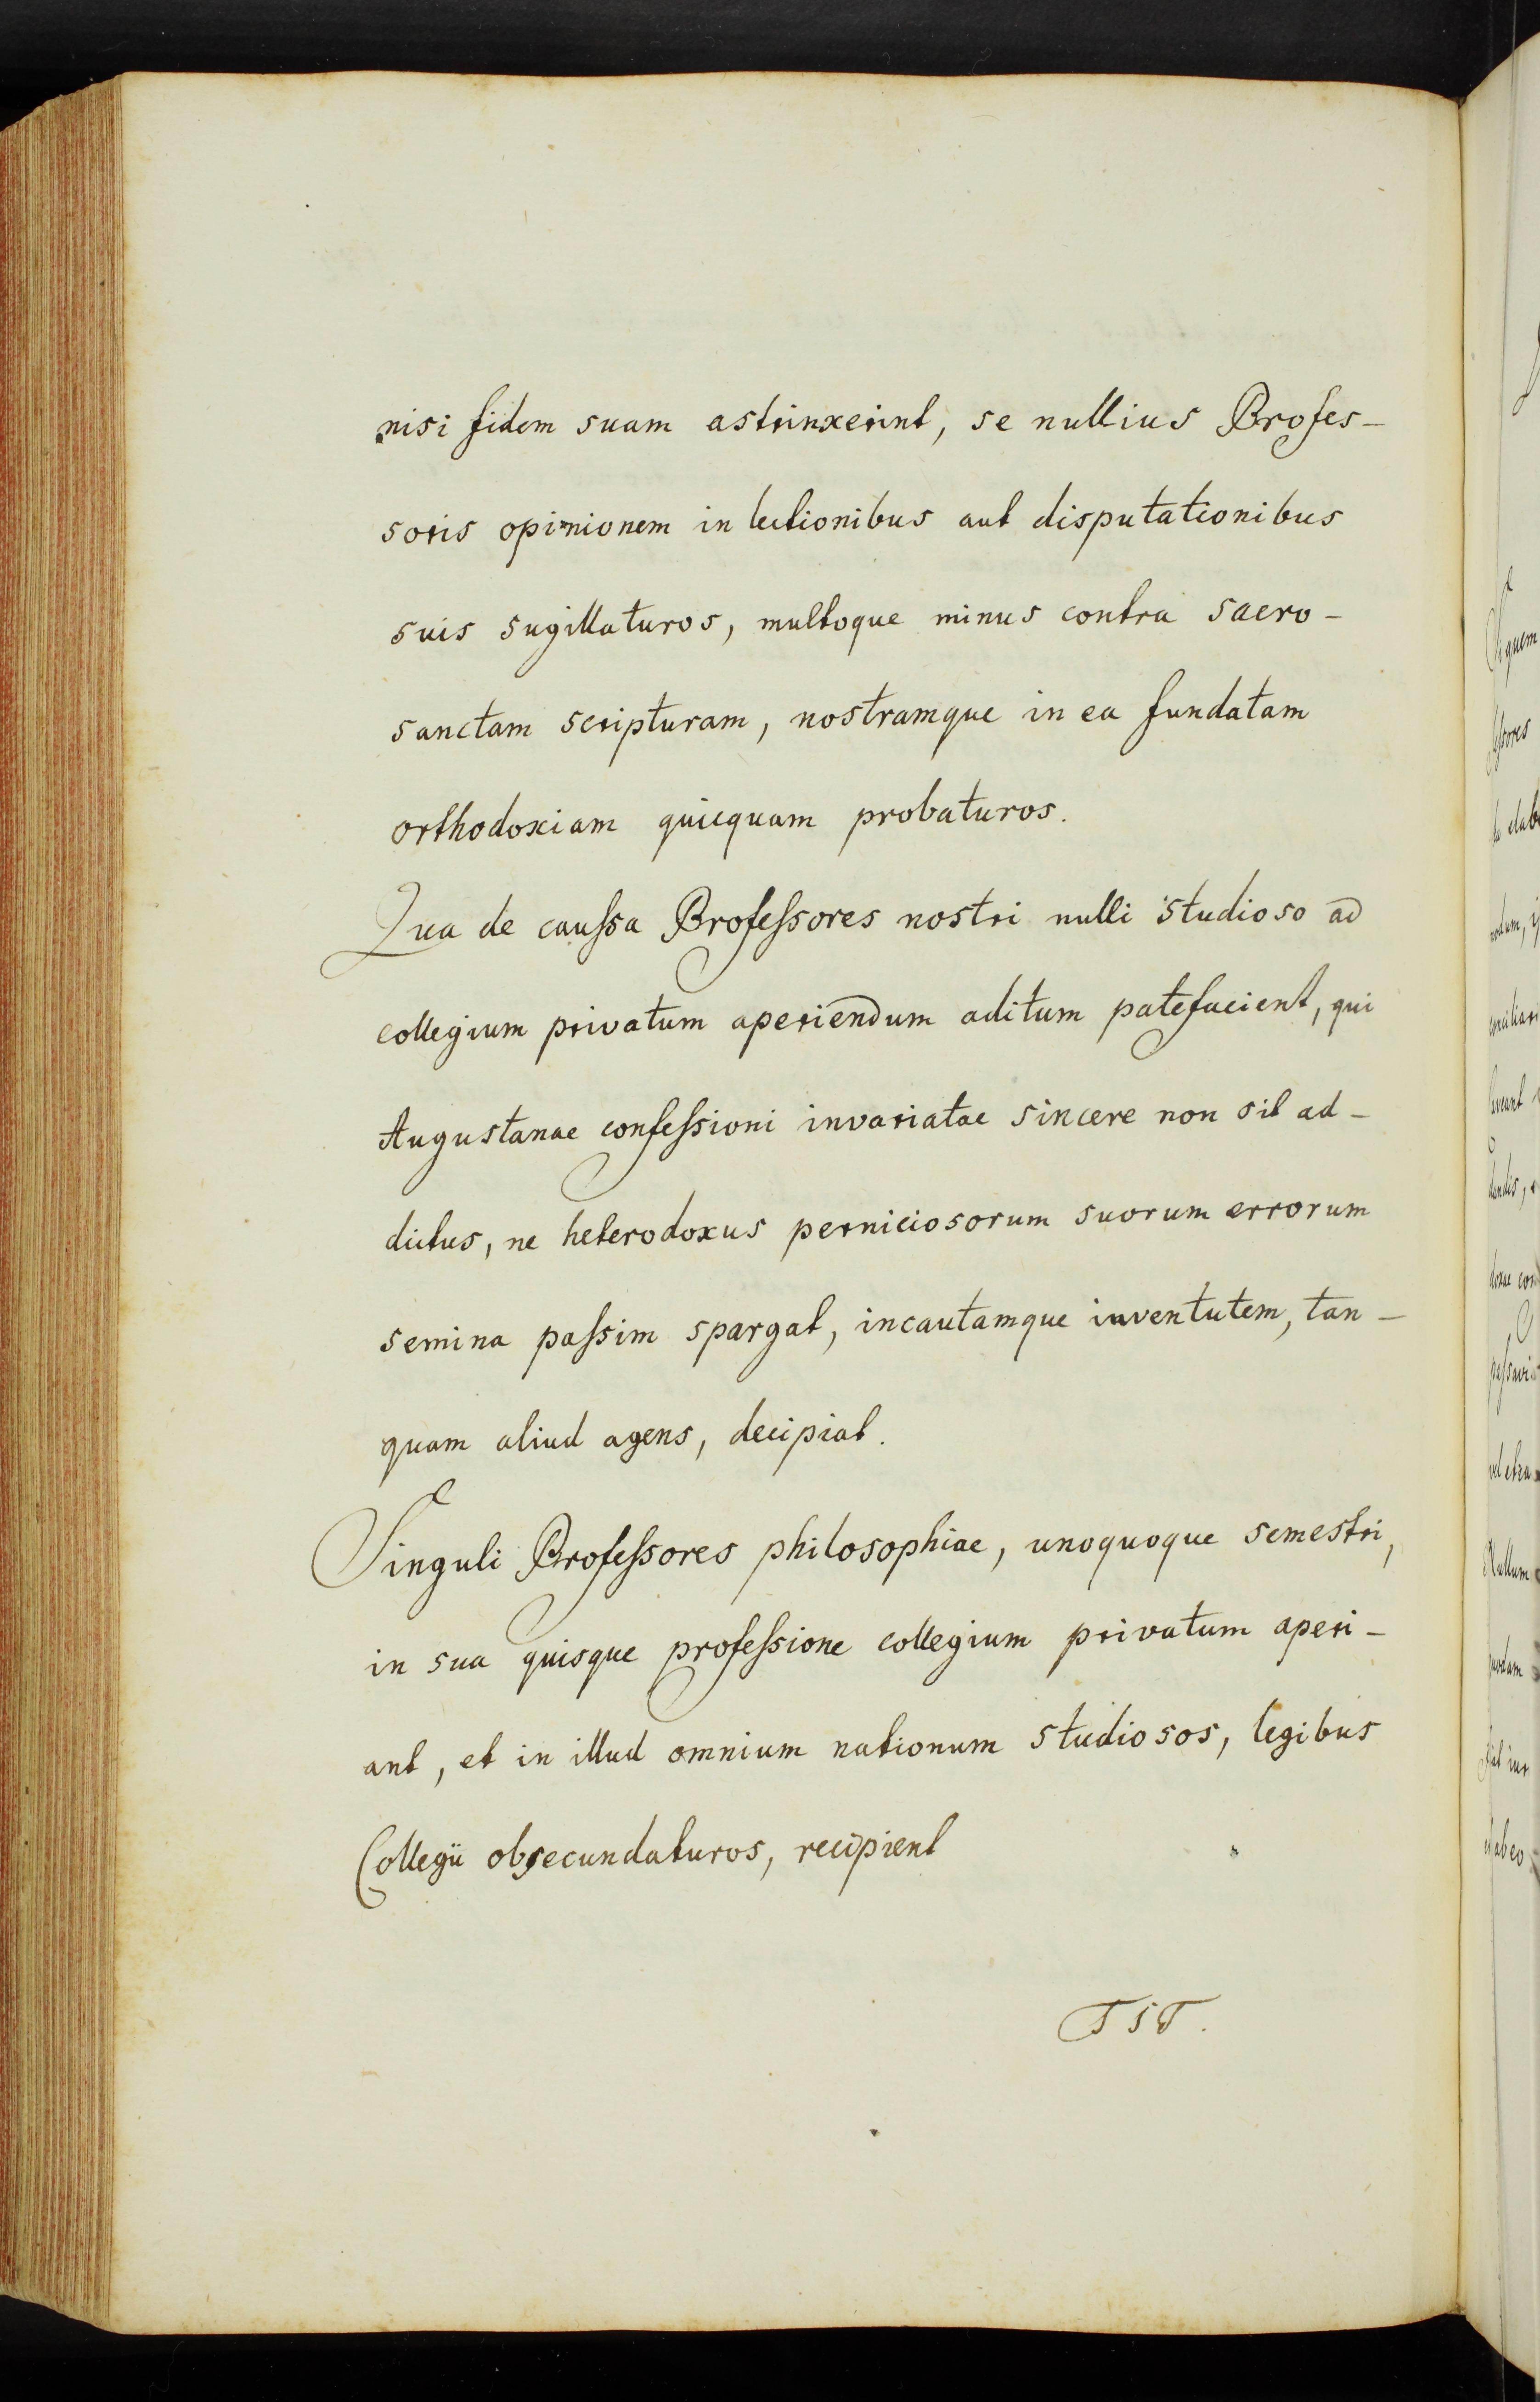 nisi fidem suam astrinxerint, se nullius Profes-
soris opinionem in lectionibus aut disputationibus
suis sugillaturos, multoque minus contra sacro-
sanctam scripturam, nostramque in ea fundatam
orthodoxiam quicquam probaturos.
Qua de caussa Professores nostri nulli studioso ad
collegium privatum aperiendum aditum patefacient, qui
Augustanae confessioni invariatae sincere non sit ad-
dictus, ne heterodoxus perniciosorum suorum errorum
semina passim spargat, incautamque iuventutem, tan-
quam aliud agens, decipiat.
Singuli Professores philosophiae, unoquoque semestri,
in sua quisque professione collegium privatum aperi-
ant, et in illud omnium nationum studiosos, legibus
Collegii obsecundaturos, recipient